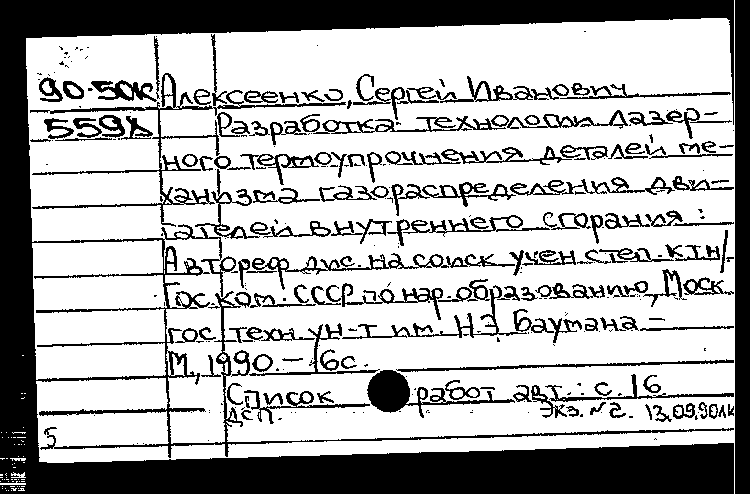 90-50К Алексеенко, Сергей Иванович
559х Разработка технологии лазер-
ного термоупрочнения деталей ме-
ханизма газораспределения дви-
гателей внутреннего сгорания:
Автореф дис. на соиск учен. степ. к.т.н/
Гос. ком. СССР по нар. образованию, Моск.
гос техн. ун-т им. Н.Э. Баумана -
М., 1990. - 16с.
Список работ авт.: с. 16
ДСП. Экз. №2. 13.09.90
5